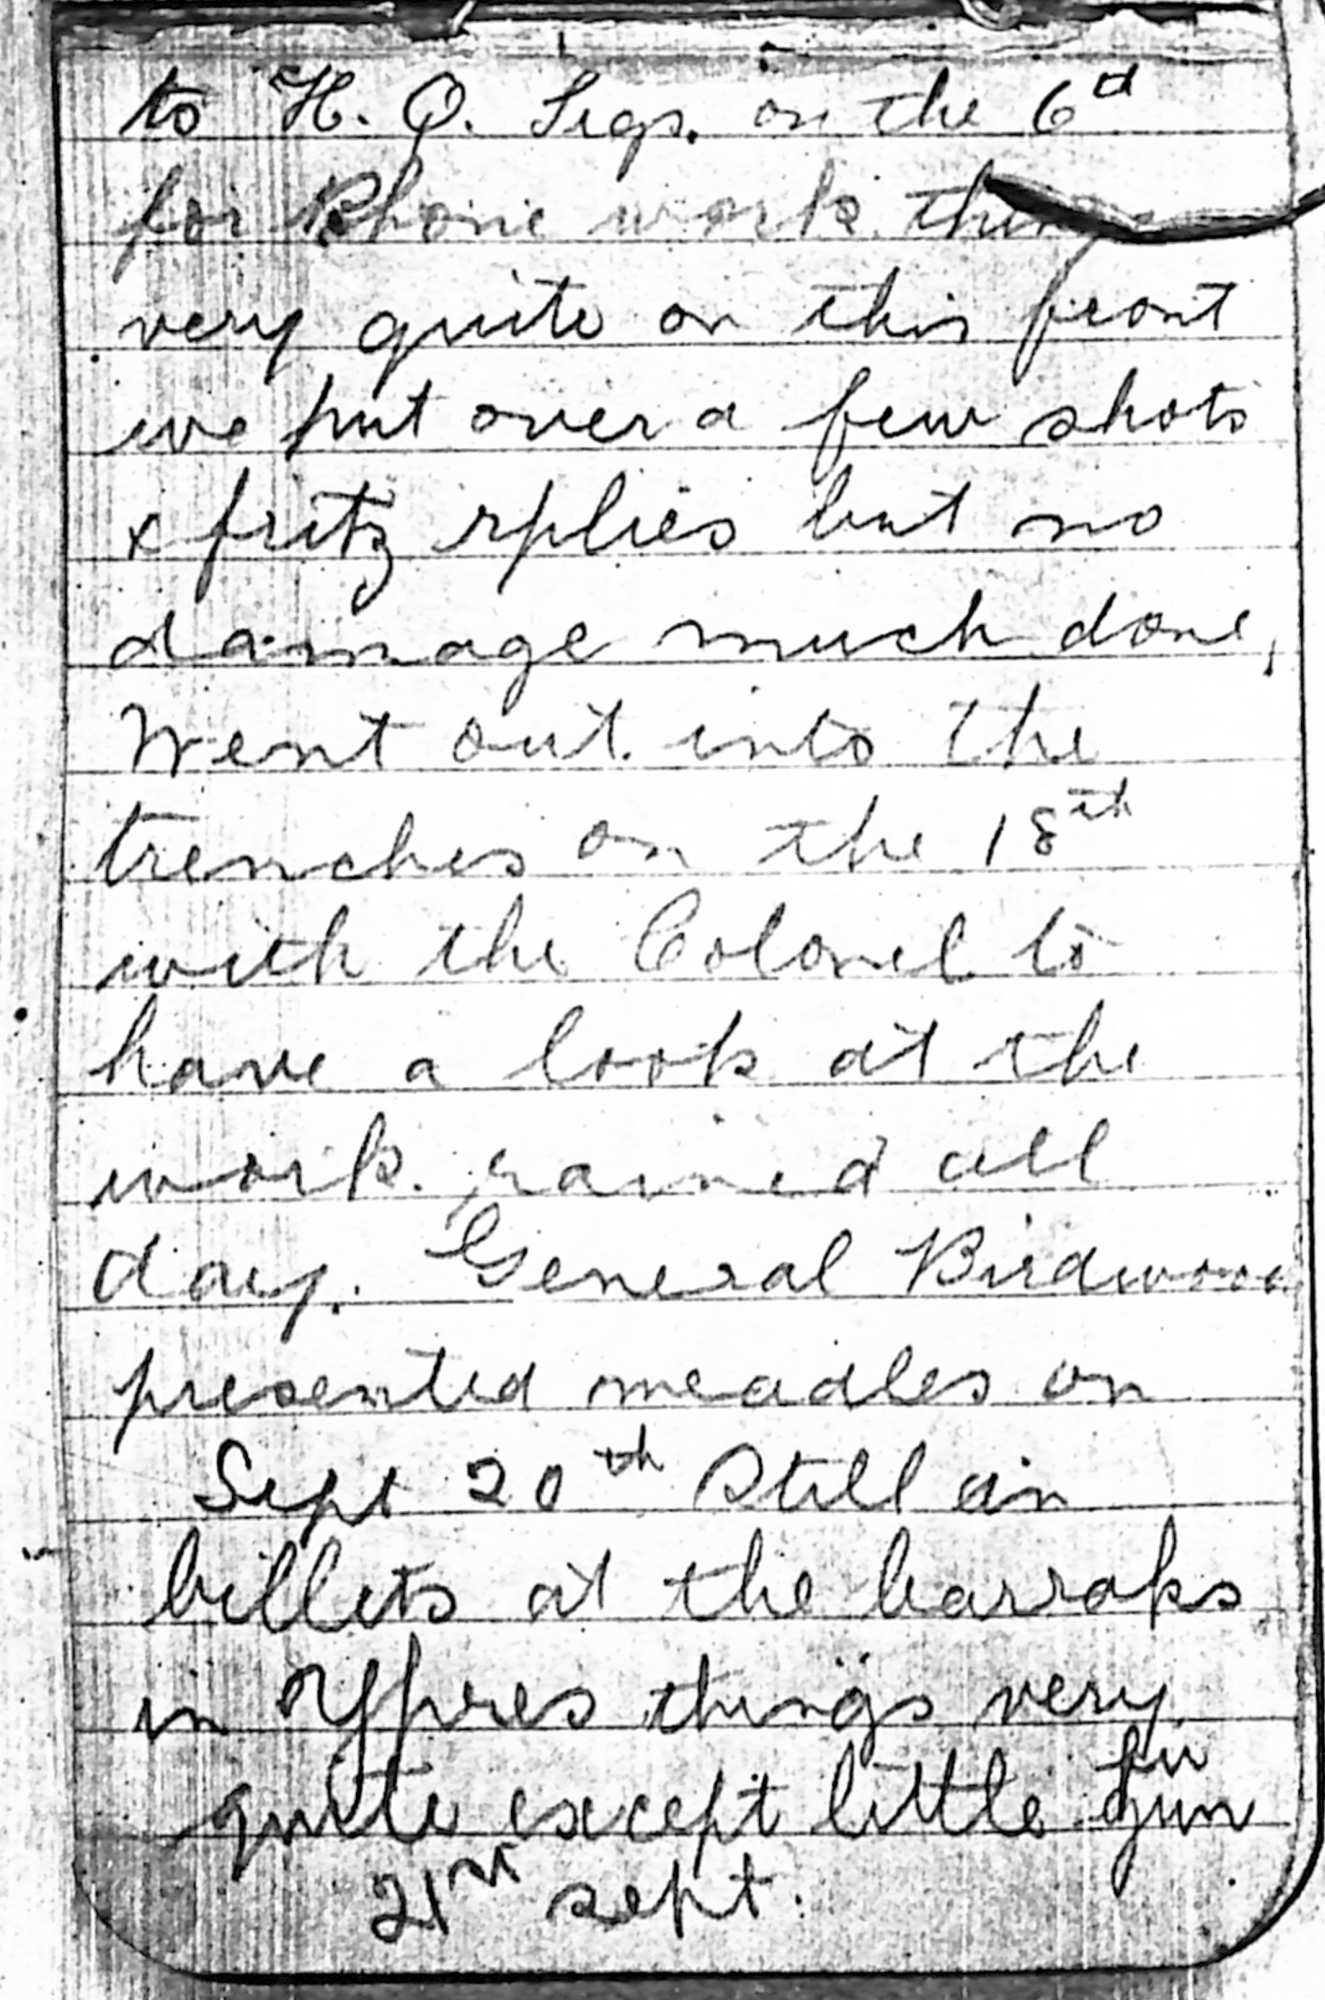 to H. Q. Sigs. on the 6th
for Phone work things
very quite on this front
we put over a few shots
x fritz rplies but no
damage much done,
Went out into the
trenches on the 18th
with the Colonel to
have a look at the
work. rained all
day. General Birdwood
presented meadles on
Sept 20th Still in
billets at the barraks
in Ypres things very
quite except little
gun
21st sept.